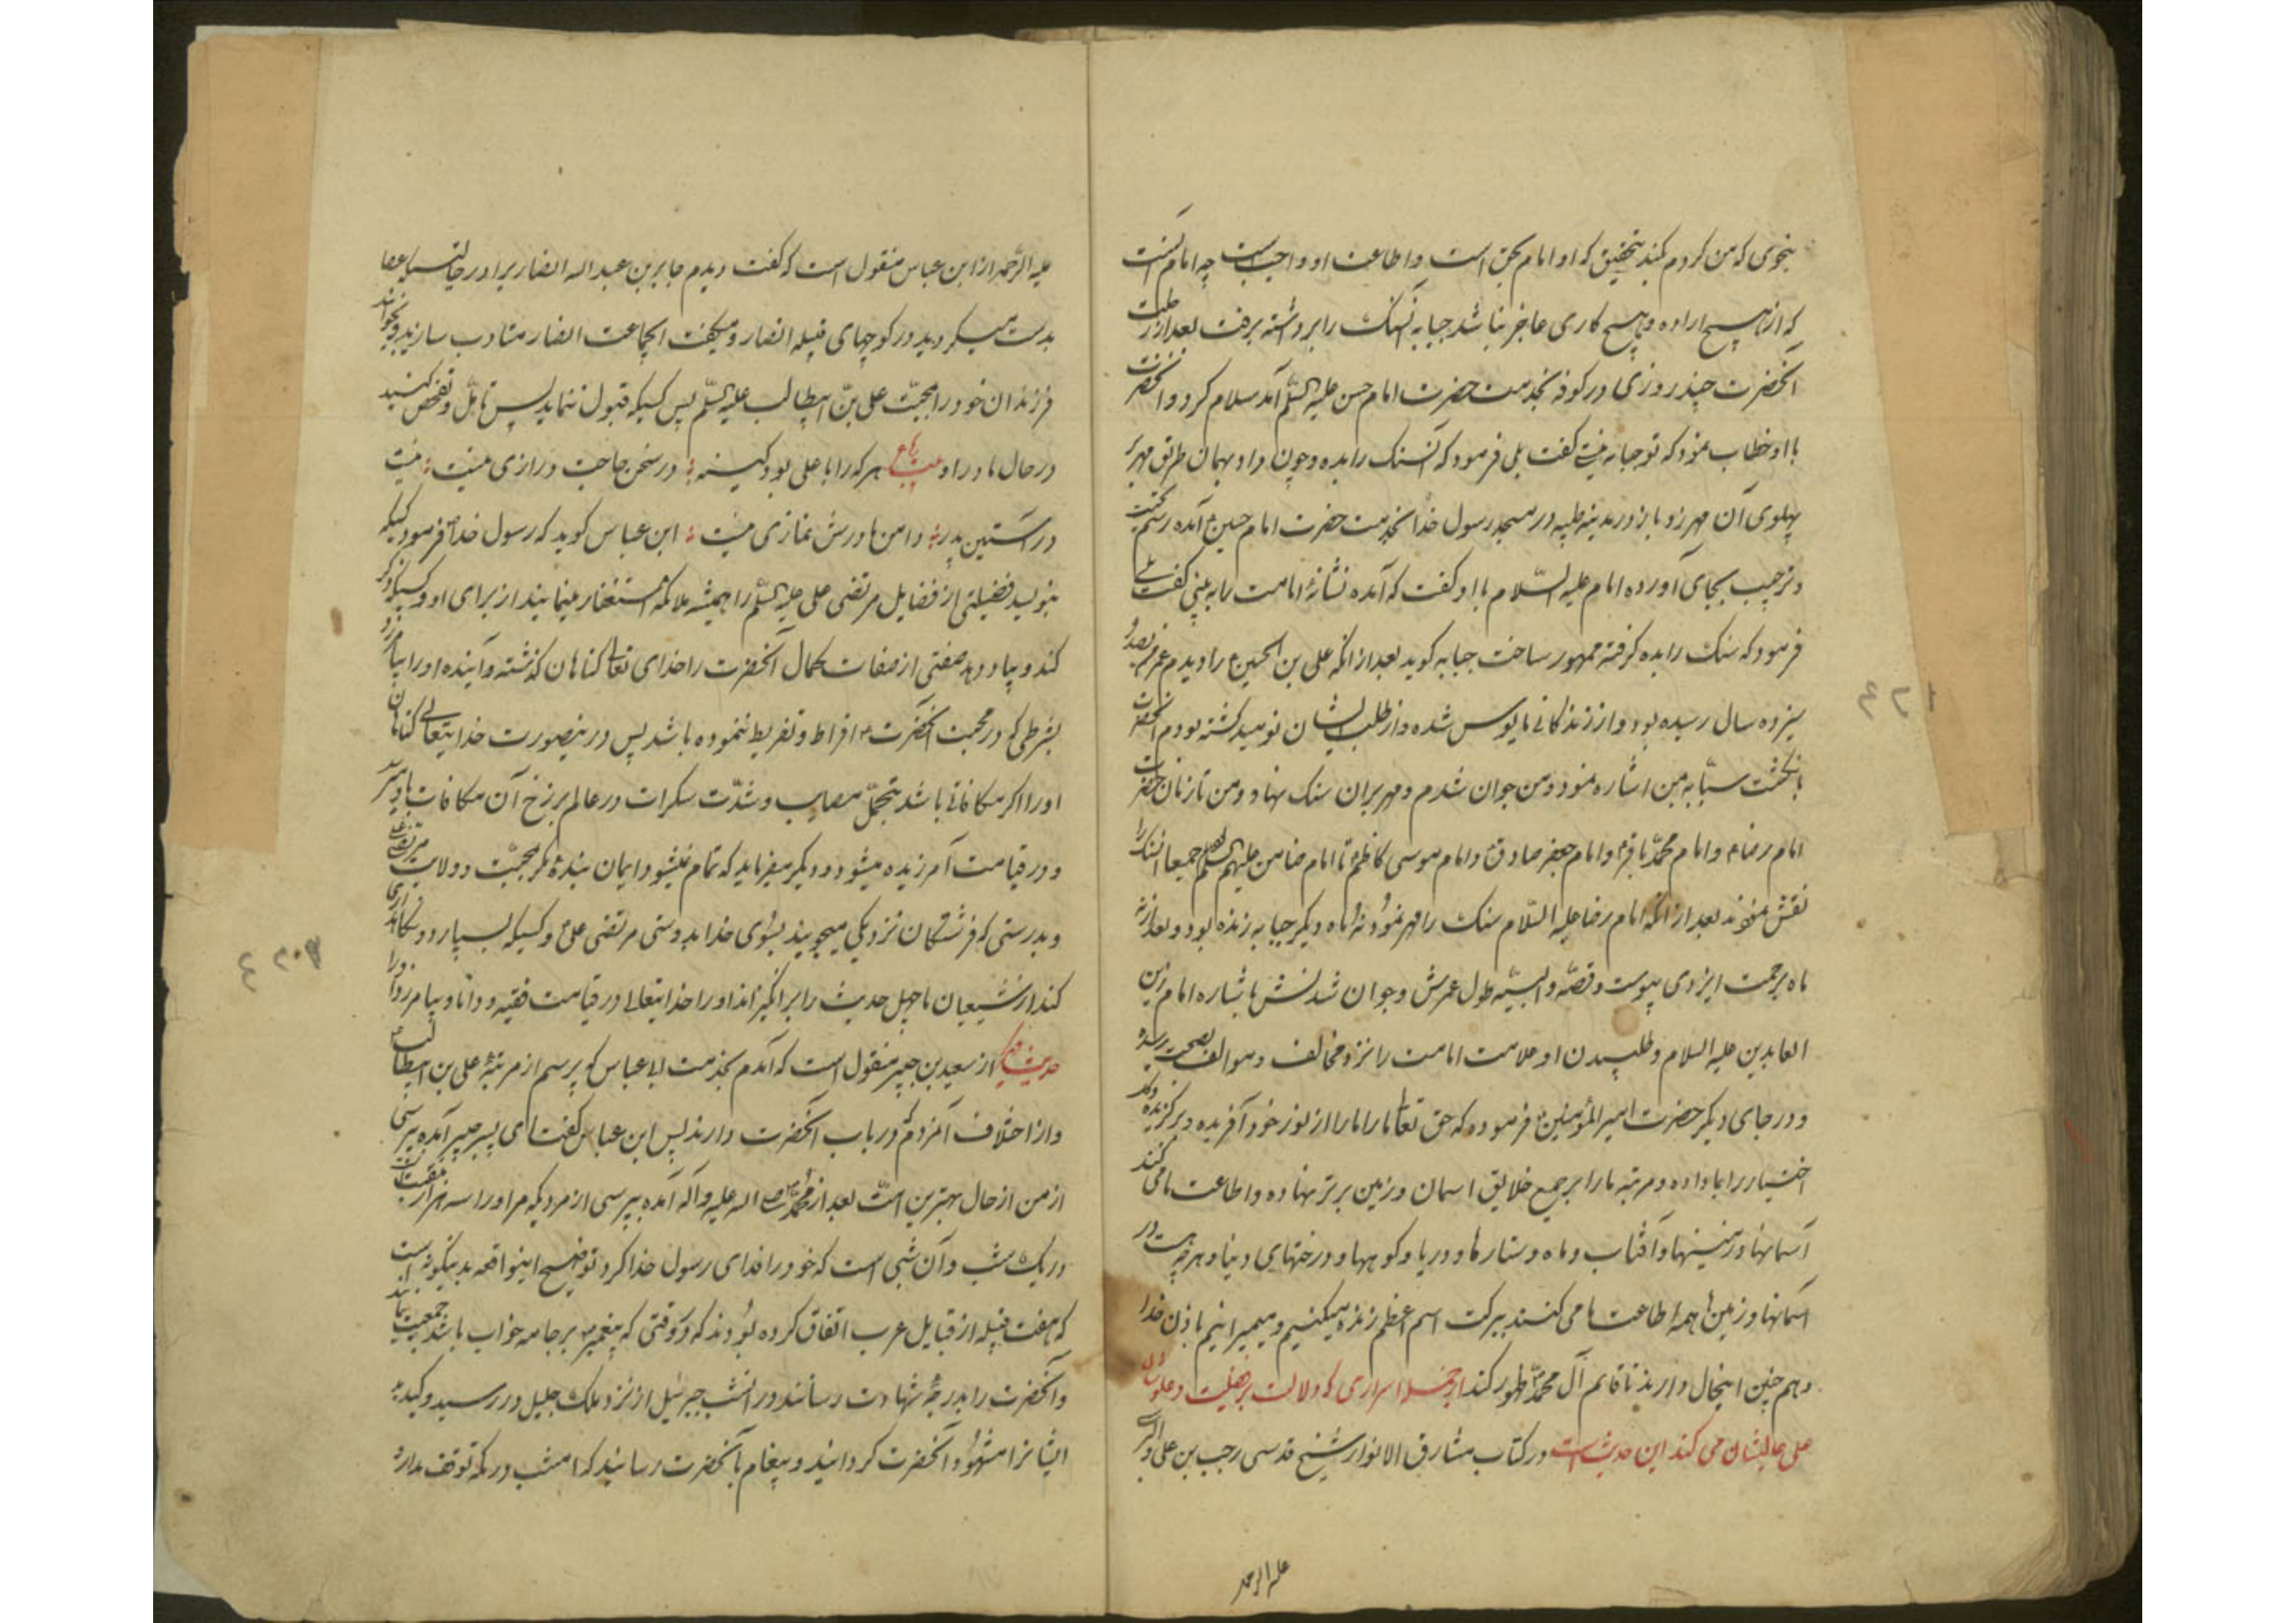 بنحوی که من کردم کند بتحقیق که او امام بحق است و اطاعت او واجب است چه امام آنست
که از هیچ اراده و هیچ کاری عاجز نباشد حبابه آن سنک را برداشته برفت بعد از رحلت
آنحضرت چند روزی در کوفه بخدمت حضرت امام حسن علیه السّلم آمد سلام کرد و آنحضرت
با او خطاب نمود که تو حبابه نیستی گفت بلی فرمود که آن سنک را بده و چون داد بهمان طریق مهر بر
پهلوی آن مهر زد باز در مدینه طیبه در مسجد رسول خدا بخدمت حضرت امام حسین آمده رسم تحیت
و ترحیب بجای آورده امام علیه السّلام با او گفت که آمده نشانهٔ امامت را به بینی گفت بلی
فرمود که سنک را بده گرفته ممهور ساخت حبابه گوید بعد از آنکه علی بن الحسین را دیدم عمرم بصد و
سیزده سال رسیده بود و از زندگانی مایوس شده و از طلب ایشان نومید گشته بودم آنحضرت
بانگشت سبّابه بمن اشاره نمود و من جوان شدم و مهر بر آن سنک نهاد و من تا زمان حضرت
امام رضا و امام محمّد باقر و امام جعفر صادق و امام موسی کاظم تا امام ضامن علیهم السلم جمیعا آن سنک را
نقش نمودند بعد از آنکه امام رضا علیه السّلام سنک را مهر نمودند نُه ماه دیکر حبابه زنده بود و بعد از نه
ماه برحمت ایزدی پیوست و قصّه والبیّه طول عمرش و جوان شدنش باشاره امام زین
العابدین علیه السلام و طلبیدن او علامت امامت را نزد مخالف و موالف بصحت رسیده
و در جای دیکر حضرت امیر المؤمنین فرموده که حق تعالی ما را از نور خود آفریده و برگزیده و
اختیار را بما داده و مرتبه ما را بر جمیع خلایق اسمان و زمین برتر نهاده و اطاعت ما می کنند
آسمانها و زمینها و آفتاب و ماه و ستارها و دریا و کوهها و درختهای دنیا و هر چه هست در
آسمانها و زمین ها همه اطاعت ما می کنند ببرکت اسم اعظم زنده میکنیم و میمیرانیم باذن خدا
و هم چنین اینحال دارند تا قائم آل محمّد ظهور کند از جمله اسراری که دلالت بر فضیلت و علو شان
علی عالیشان می کند این حدیث است در کتاب مشارق الانوار شیخ قدسی رجب بن علی
علیه الرحمه
علیه الرّحمه از ابن عباس منقول است که گفت دیدم جابر بن عبد اله انصاری را در حالتیکه عصا
بدست میکردید در کوچهای قبیله انصار و میکفت ایجماعت انصار متادب سازید و بخوانید
فرزندان خود را بمحبّت علی بن ابیطالب علیه السّلم پس کسیکه قبول ننماید پس تامّل و تفحص کنید
در حال مادر او بیت هر که را با علی بود کینه در سخن حاجت درازی نیست نیست
در آستین پدر دامن مادرش نمازی نیست ابن عباس کوید که رسول خدا فرمود کسیکه
بنویسد فضیلتی از فضایل مرتضی علی علیه السّلم را همیشه ملائکه استغفار مینمایند از برای او و کسیکه ذکر
کند و بیاد دهد صفتی از صفات کمال آنحضرت را خدای تعالی کناهان گذشته و آینده او را بیامرزد
بشرطی که در محبت آنحضرت افراط و تفریط ننموده باشد پس در ینصورت خدا یتعالی کناهان
او را اکر مکافاتی باشد بتحمّل مصایب و شدّت سکرات در عالم برزخ آن مکافات باو میرسد
و در قیامت آمرزیده میشود و دیکر میفرماید که تمام نمیشود ایمان بندهٔ مکر بمحبّت و ولایت مرتضی علی
و بدرستی که فرشتکان نزدیکی میجویند بسوی خدا بدوستی مرتضی علی و کسیکه بسپارد و نکاهداری
کند از شیعیان ما چهل حدیث را برانگیزاند او را خدا یتعالی در قیامت فقیه و دانا و بیامرزد او را
حدیث دیگر از سعید بن جبیر منقول است که آمدم بخدمت ابن عباس که پرسم از مرتبهٔ علی بن ابیطالب
و از اختلاف که مردم در باب آنحضرت دارند پس ابن عباس گفت ای پسر جبیر آمده بپرسی
از من از حال بهترین امّت بعد از محمّد صلی اله علیه و آله آمده بپرسی از مردیکه مر او را سه هزار منقبت است
در یک شب و آن شبی است که خود را فدای رسول خدا کرد توضیح اینواقعه بدینگونه است
که هفت قبیله از قبایل عرب اتفاق کرده بودند که در وقتی که پیغمبر بر جامه خواب باشد جمعیت نمایند
و آنحضرت را بدرجهٔ شهادت رسانند در آنشب جبرئیل از نزد ملک جلیل در رسید و کید
ایشانرا مشهود آنحضرت کردانید و پیغام بآنحضرت رسانید که امشب در مکه توقف مدار